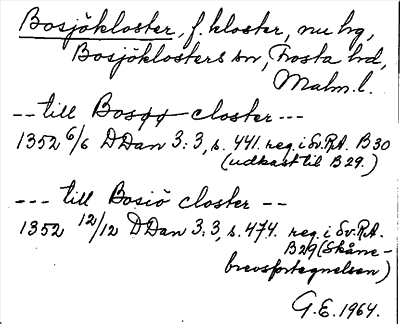 Bosjökloster, f. kloster, nu hg,
Bosjöklosters sn, Frosta hd,
Malm. l.
-- till Bosøø closter ---
1352 6/6 DDan 3:3, s. 441. reg. i Sv.R.A. B30
(udkast til B29.)
--- till Bosiö closter --
1352 12/12 DDan 3:3, s. 474. reg. i Sv.R.A.
B29 (Skåne-
brevsfortegnelsen)
G.E. 1964.